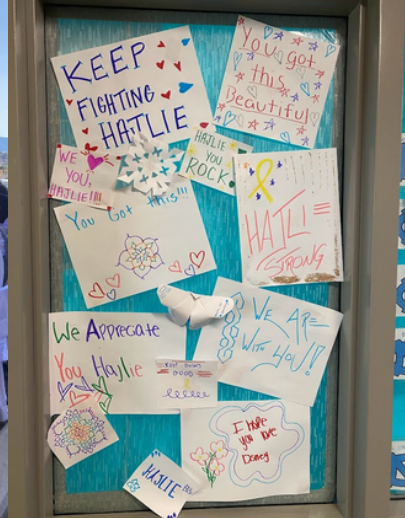 KEEP
FIGHTING
HAJLIE
You got
this
Beautiful
WE
YOU,
HAJLIE!!!!
HAJLIE
YOU
ROCK
You Got this!!!
HAJLIE
STRONG
We Appreciate
You Hajlie
WE ARE
WITH YOU!!
I hope
you love
Disney
HAJLIE